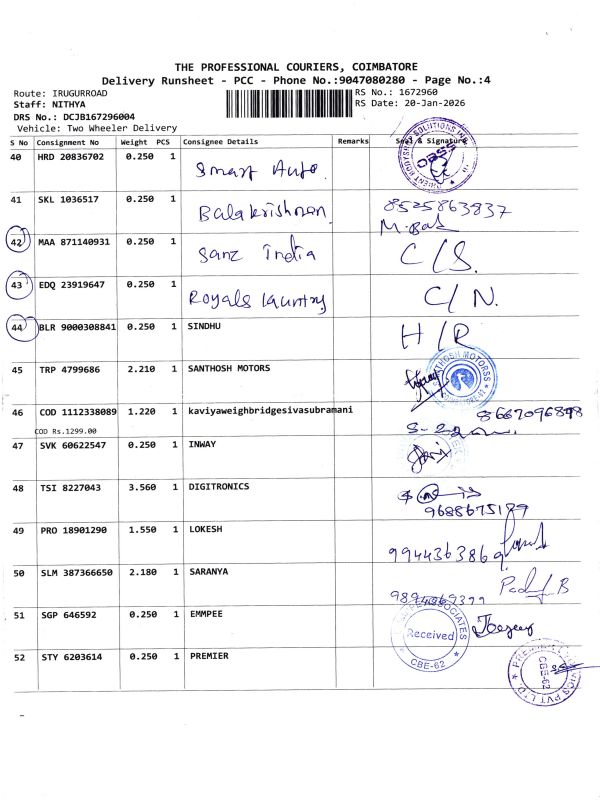 THE PROFESSIONAL COURIERS, COIMBATORE
Delivery Runsheet - PCC - Phone No.:9047080280 - Page No.:4
Route: IRUGURROAD
Staff: NITHYA
DRS No.: DCJB167296004
Vehicle: Two Wheeler Delivery
RS No.: 1672960
RS Date: 20-Jan-2026
S No Consignment No Weight PCS Consignee Details Remarks Seal & Signature
40 HRD 20836702 0.250 1 Smart Auto.
41 SKL 1036517 0.250 1 Balakrishnan 8525863937
M.Bal
42 MAA 871140931 0.250 1 Sanz India C/S.
43 EDQ 23919647 0.250 1 Royals laundry C/N.
44 BLR 9000308841 0.250 1 SINDHU H/R
45 TRP 4799686 2.210 1 SANTHOSH MOTORS
46 COD 1112338089 1.220 1 kaviyaweighbridgesivasubramani
COD Rs.1299.00
47 SVK 60622547 0.250 1 INWAY
48 TSI 8227043 3.560 1 DIGITRONICS
9688675189
49 PRO 18901290 1.550 1 LOKESH
9944363869
50 SLM 387366650 2.180 1 SARANYA
51 SGP 646592 0.250 1 EMMPEE
Received
CBE-62
52 STY 6203614 0.250 1 PREMIER
CBE-62